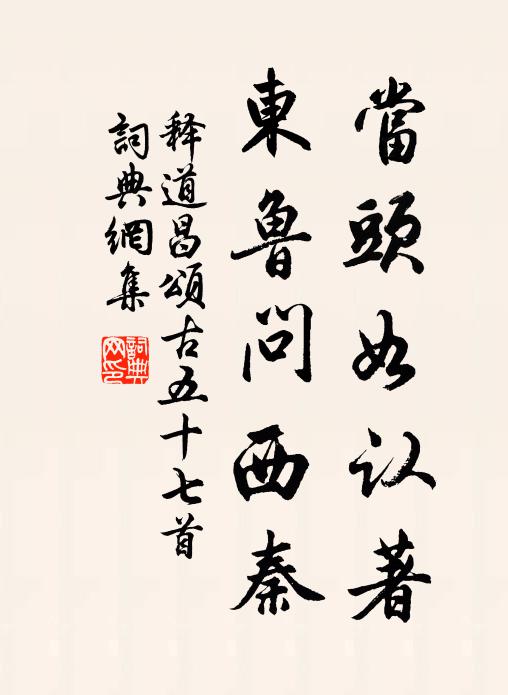 當頭如认著
東魯問西秦
释道昌頌古五十七首
詞典網集
詞典网印